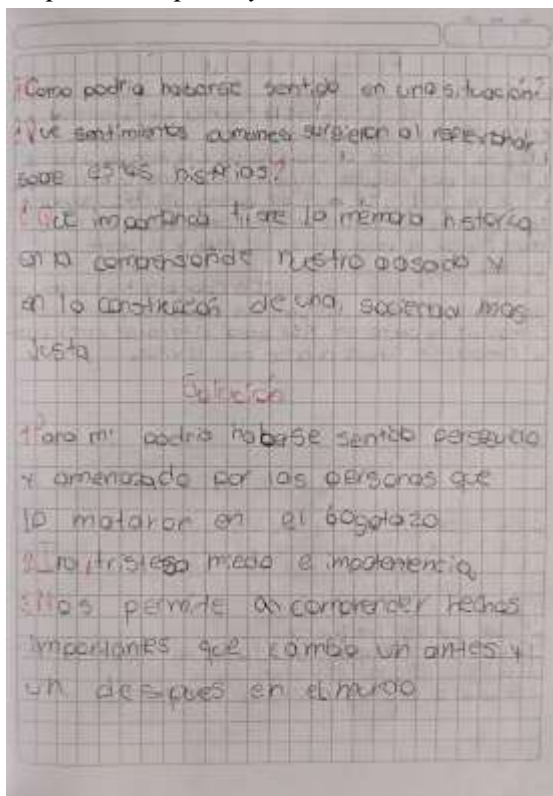 ¿Como podria haberse sentido en una situación?
¿Que sentimientos cumones surgieron al reflexionar
sobe estas histrias?
¿Que importancia tiene la memoria historica
en la comprensión de nustro pasado y
en la construcción de una sociedad mas
justa
Solución
1 Para mi podria haberse sentido persegucio
y amenazado por las personas que
lo mataron en el bogotazo
2 Ira, tristesa miedo e impotenencia
3 Nos permite a comprender hechos
importantes que cambio un antes y
un despues en el mundo